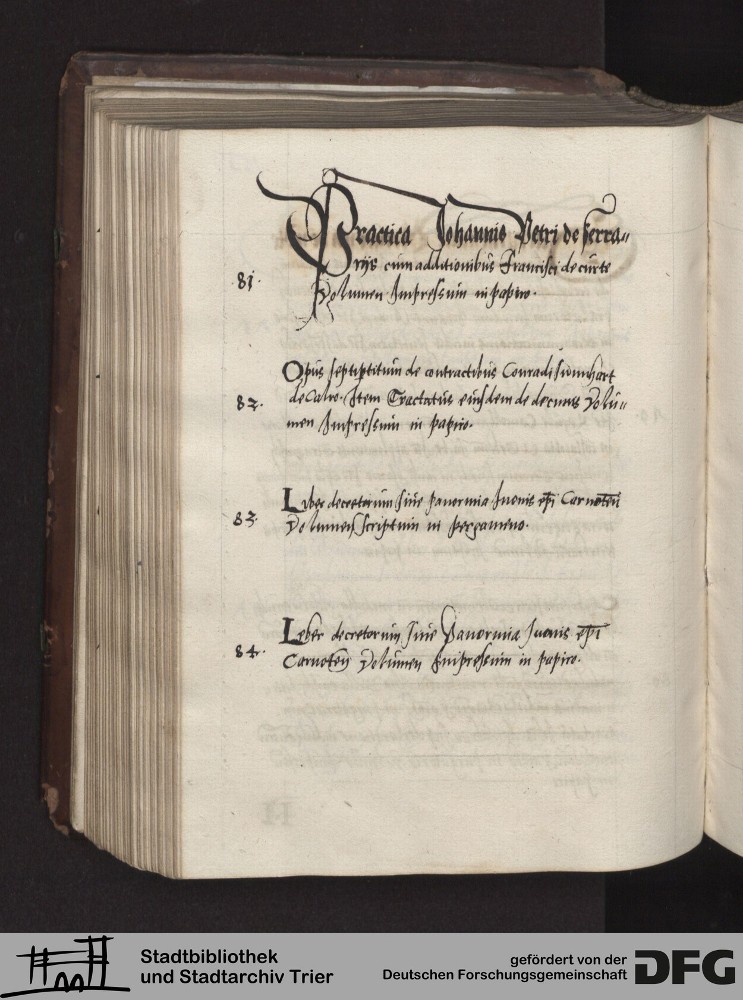 Practica Johannis Petri de ferra„
rijs cum additionibus Francisci de curte
81. Volumen Impressum in papiro.
Opus septipertitum de contractibus Conradi Sumhart
82. de Calvo. Item Tractatus eiusdem de decimis Volu„
men Impressum in papiro.
Liber decretorum siue panormia Iuonis epi Carnoteñ
83. Volumen scriptum in pergameno.
Leber decretorum siue Panormia Iuonis epi
84. Carnoteñ Volumen Impressum in papiro.
Stadtbibliothek
und Stadtarchiv Trier
gefördert von der
Deutschen Forschungsgemeinschaft
DFG